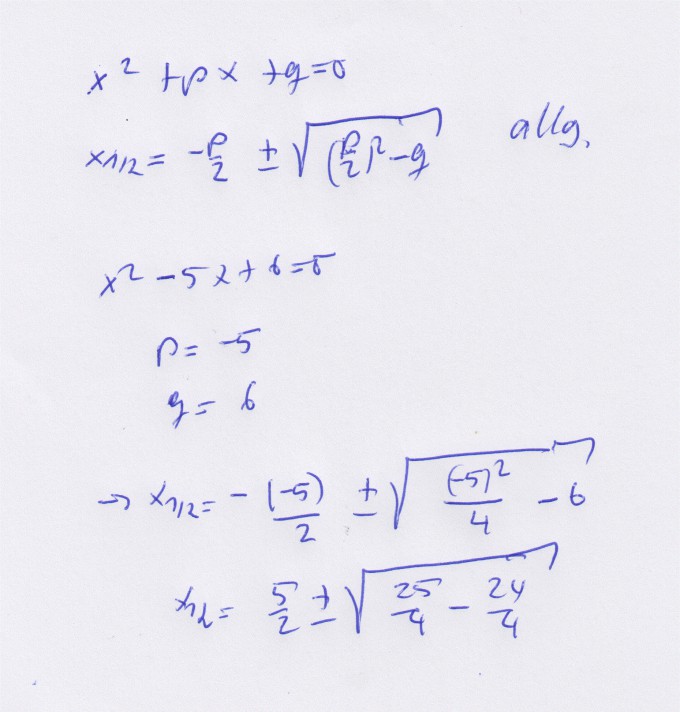 x² + px + q = 0
x1/2 = -p/2 ± √((p/2)² - q) allg.
x² - 5x + 6 = 0
p = -5
q = 6
→ x1/2 = - (-5)/2 ± √((-5)²/4 - 6)
x1/2 = 5/2 ± √(25/4 - 24/4)